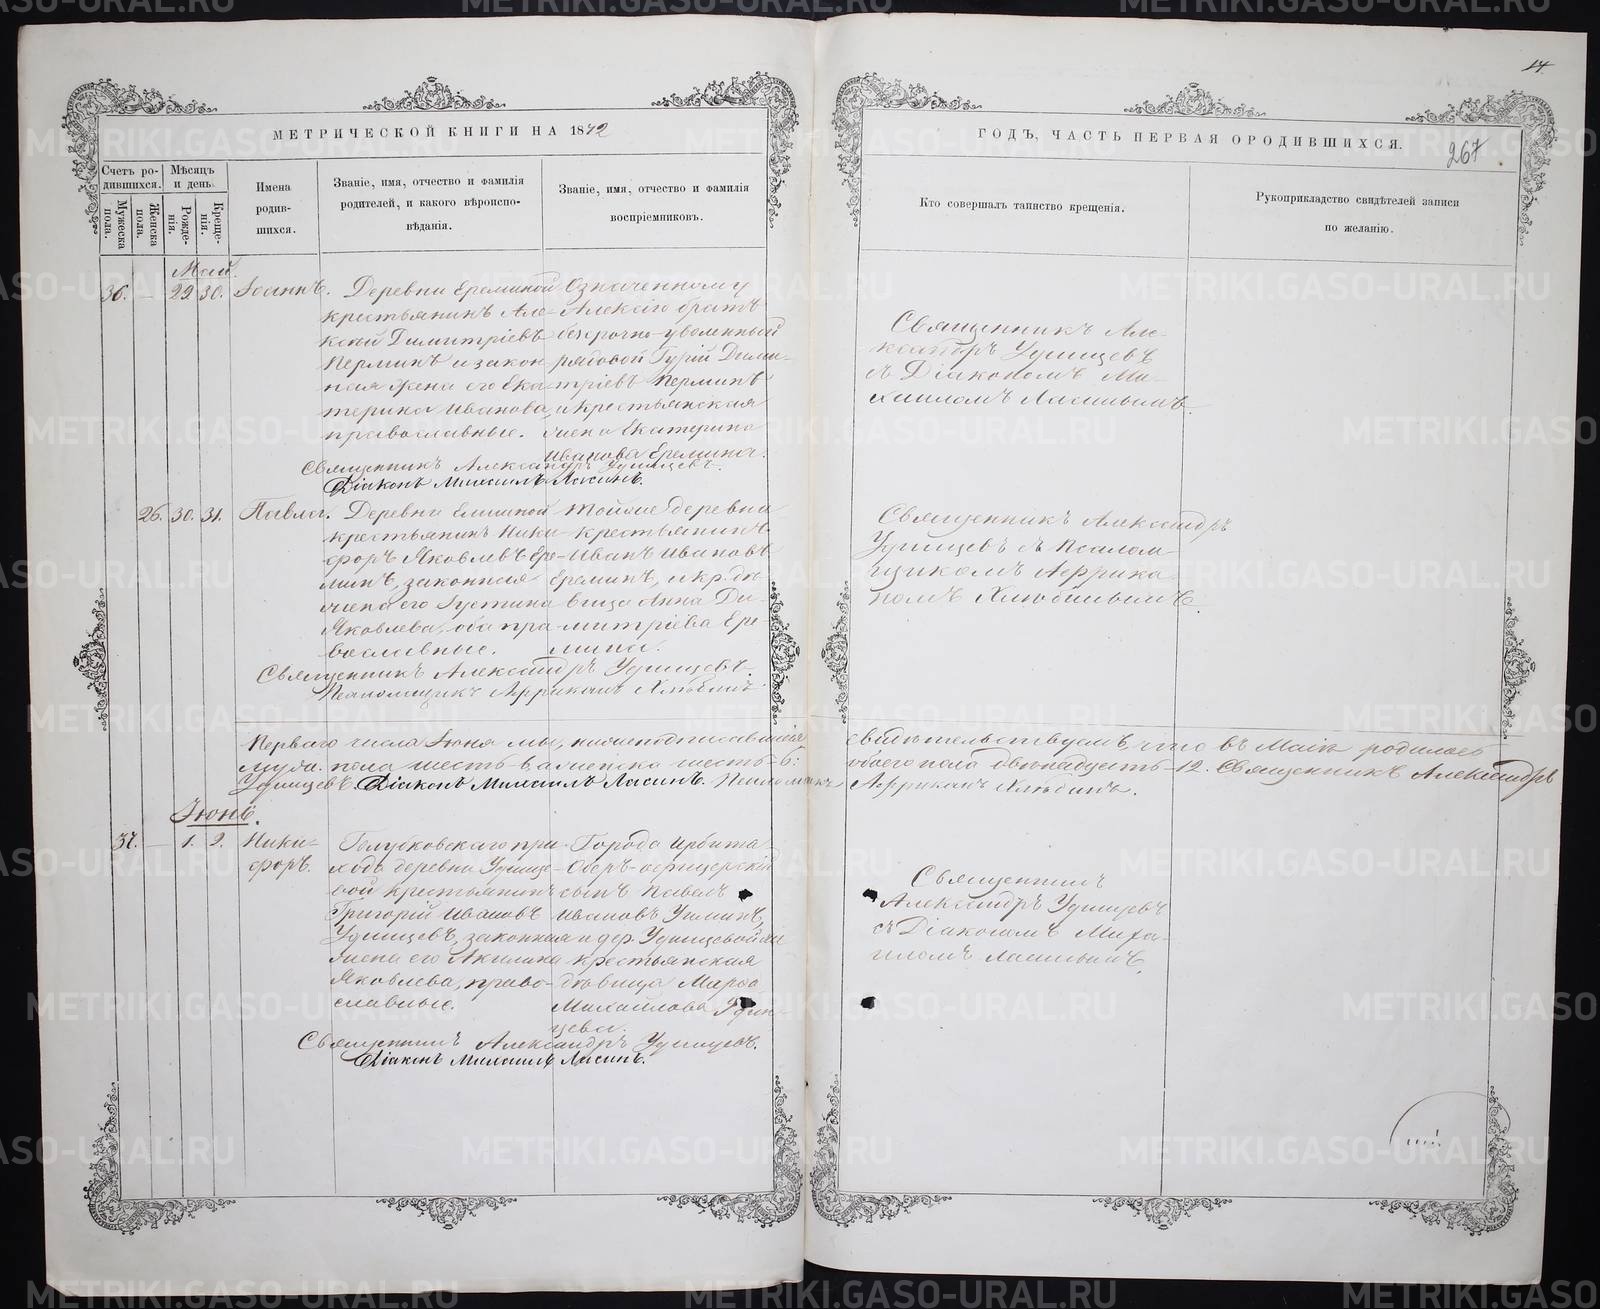 14.
267
МЕТРИЧЕСКОЙ КНИГИ НА 1872
ГОДЪ, ЧАСТЬ ПЕРВАЯ О РОДИВШИХСЯ.
Счетъ родившихся.
Мужеска пола.
Женска пола.
Мѣсяцъ и день.
Рожденія.
Крещенія.
Имена родившихся.
Званіе, имя, отчество и фамилія родителей, и какого вѣроисповѣданія.
Званіе, имя, отчество и фамилія воспріемниковъ.
Кто совершалъ таинство крещенія.
Рукоприкладство свидѣтелей записи по желанію.
Май.
36. — 29. 30. Іоаннъ.
Деревни Ереминой
крестьянинъ Але-
ксѣй Димитріевъ
Перминъ и закон
ная жена его Ека
терина Иванова,
православные.
Означенному
Алексію братъ
безсрочно-уволенный
рядовой Гурій Дими-
тріевъ Перминъ
и крестьянская
жена Екатерина
Иванова Еремина.
Священникъ Александръ Удинцевъ.
Діаконъ Михаилъ Ласинъ.
Священникъ Але-
ксандръ Удинцевъ
съ Діакономъ Ми-
хаиломъ Ласинымъ.
26. 30. 31. Павла.
Деревни
крестьянинъ Ники-
форъ Яковлевъ Ере-
минъ, законная
жена его Іустина
Яковлева, оба пра-
вославные.
Тойже деревни
крестьянинъ
Иванъ Ивановъ
Ереминъ, и кр. дѣ
вица Анна Ди-
митріева Ере-
мина.
Священникъ Александръ Удинцевъ.
Псаломщикъ Африканъ Хлѣбинъ.
Священникъ Александръ
Удинцевъ съ Псалом-
щикомъ Африка-
номъ Хлѣбинымъ.
Перваго числа Іюня мы, нижеподписавшіеся свидѣтельствуемъ, что въ Маѣ родилось
муж. пола шесть-6, а женска шесть-6: обоего пола двѣнадцать-12. Священникъ Александръ
Удинцевъ. Діаконъ Михаилъ Ласинъ. Псаломщикъ Африканъ Хлѣбинъ.
Іюнь.
37. — 1. 2. Ники-
форъ.
Голубковскаго при
хода деревни Удинце-
вой крестьянинъ
Григорій Ивановъ
Удинцевъ, законная
жена его Акилина
Яковлева, право-
славные.
Города Ирбита
Оберъ-офицерскій
сынъ Павелъ
Ивановъ
и дер. Удинцевой
крестьянская
дѣвица Марѳа
Михайлова Удин-
цева.
Священникъ Александръ Удинцевъ.
Діаконъ Михаилъ Ласинъ.
Священникъ
Александръ Удинцевъ
съ Діакономъ Миха-
иломъ Ласинымъ.
METRIKI.GASO-URAL.RU